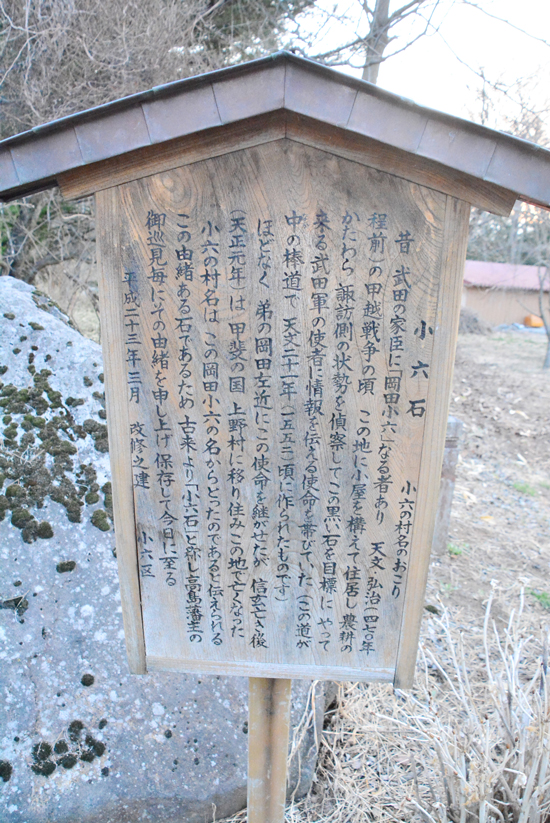 小六石
小六の村名のおこり
昔 武田の家臣に「岡田小六」なる者あり 天文・弘治(四七〇年
程前)の甲越戦争の頃 この地に小屋を構えて住居し 農耕の
かたわら 諏訪側の状勢を偵察してこの黒い石を目標に やって
来る武田軍の使者に情報を伝える使命を帯びていた(この道が
中の棒道で 天文二十一年(一五五二)頃に作られたものです)
ほどなく 弟の岡田左近にこの使命を継がせたが 信玄亡き後
(天正元年)は 甲斐の国 上野村に移り住みこの地で亡くなった
小六の村名は この岡田小六の名からとったのであると伝えられる
この由緒ある石であるため 古来より「小六石」と称し高島藩主の
御巡見毎にその由緒を申し上げ 保存して今日に至る
平成二十三年三月 改修之建 小六区